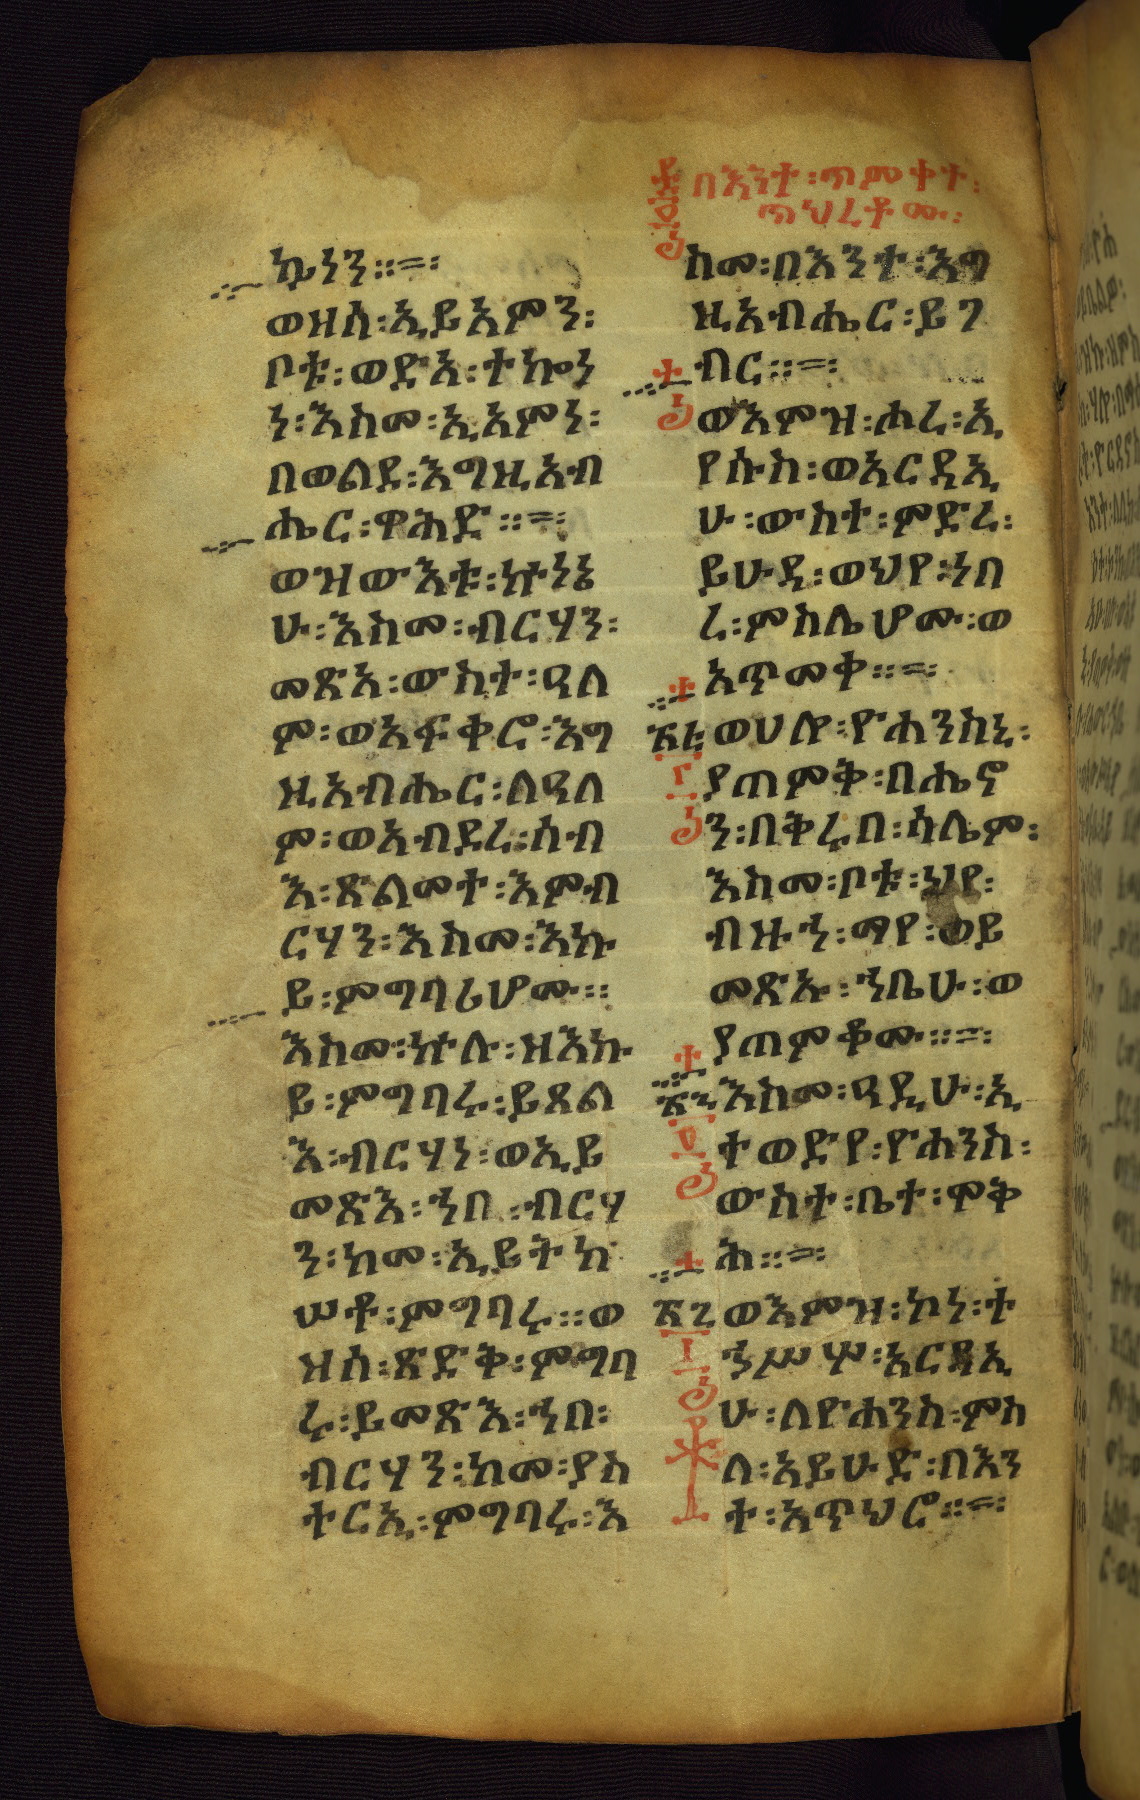 ኴነን።=፡
ወዝሰ፡ኢይአምን፡
ቦቱ፡ወድአ፡ተኰነ
ነ፡እስመ፡ኢአምነ፡
በወልደ፡እግዚአብ
ሔር፡ዋሕድ።=፡
ወዝውእቱ፡ኵነኔ
ሁ፡እስመ፡ብርሃን፡
መጽአ፡ውስተ፡ዓለ
ም፡ወአፍቀሮ፡እግ
ዚአብሔር፡ለዓለ
ም፡ወአብደረ፡ሰብ
እ፡ጽልመተ፡እምብ
ርሃን፡እስመ፡እኩ
ይ፡ምግባሪሆሙ።
እስመ፡ኵሉ፡ዘእኩ
ይ፡ምግባሩ፡ይጸል
እ፡ብርሃነ፡ወኢይ
መጽእ፡ኀበ፡ብርሃ
ን፡ከመ፡ኢይትከ
ሠቶ፡ምግባሩ።ወ
ዝሰ፡ጽድቅ፡ምግባ
ሩ፡ይመጽእ፡ኀበ፡
ብርሃን፡ከመ፡ያስ
ተርኢ፡ምግባሩ፡እ
በእንተ፡ጥምቀተ፡
ጥህረቶሙ፡
ስመ፡በእንተ፡እግ
ዚአብሔር፡ይገ
ብር።=፡
ወእምዝ፡ሐረ፡ኢ
የሱስ፡ወአርዳኢ
ሁ፡ውስተ፡ምድረ፡
ይሁዳ፡ወህየ፡ነበ
ረ፡ምስሌሆሙ፡ወ
አጥመቀ።=፡
ወሀሎ፡ዮሐንስኒ፡
ያጠምቅ፡በሔኖ
ን፡በቅሩበ፡ሳሌም፡
እስመ፡ቦቱ፡ህየ፡
ብዙኀ፡ማየ፡ወይ
መጽኡ፡ኀቤሁ፡ወ
ያጠምቆሙ።=፡
እስመ፡ዓዲሁ፡ኢ
ተወድየ፡ዮሐንስ፡
ውስተ፡ቤተ፡ሞቅ
ሕ።=፡
ወእምዝ፡ኮነ፡ተ
ኀሥሦ፡አርዳኢ
ሁ፡ለዮሐንስ፡ምስ
ለ፡አይሁድ፡በእን
ተ፡አጥህሮ።=፡